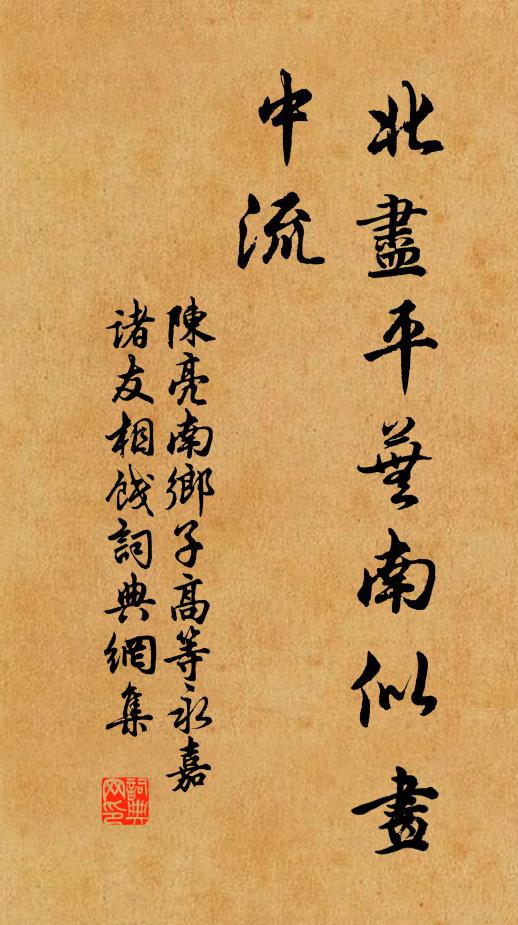 北盡平蕪南似畫
中流
陳亮南鄉子高等永嘉
諸友相餞詞典網集
詞典网印